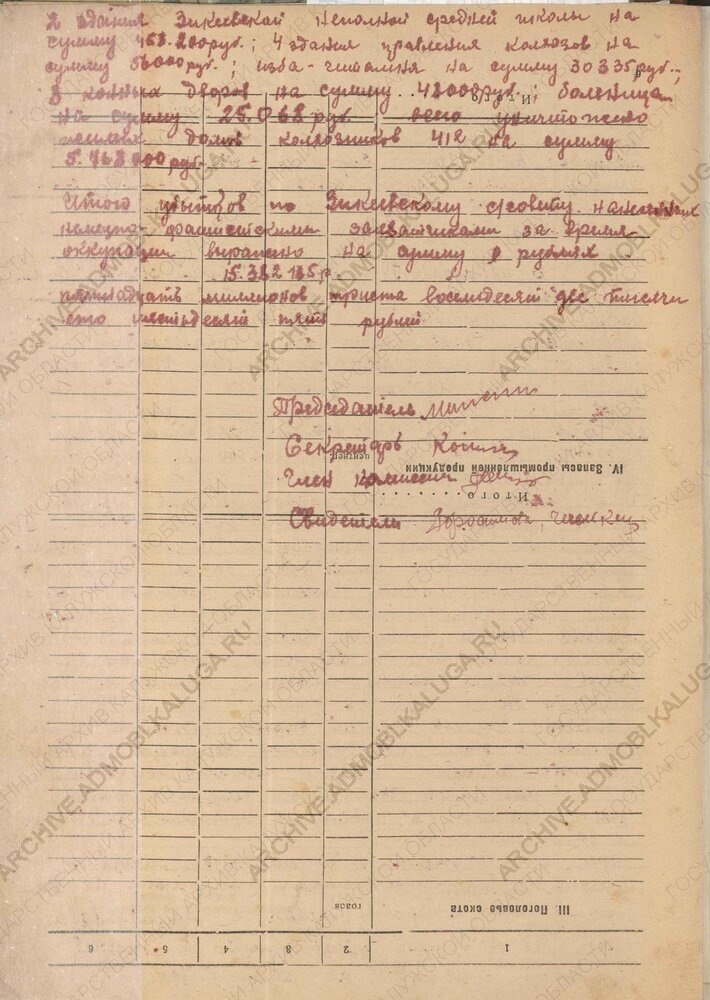 2 здания Зикеевской неполной средней школы на
сумму 453.200руб.; 4 здания правления колхозов на
сумму 56000руб.; изба-читальня на сумму 30335руб.;
8 конных дворов на сумму 42000руб.; больница
на сумму 25.068 руб. всего уничтожено
жилых домов колхозников 412 на сумму
5.768000руб.
Итого убытков по Зикеевскому с/совету нанесенных
немецко-фашистскими захватчиками за время
оккупации выражено на сумму в рублях
15.382 165р
пятнадцать миллионов триста восемьдесят две тысячи
сто шестьдесят пять рублей
Председатель
Секретарь
центнер.
IV. Запасы промышленной продукции
Член комиссии
Итого
Свидетели
голов
III. Поголовье скота
6 5 4 3 2 1
Итого
ARCHIVE.ADMOBLKALUGA.RU
ГОСУДАРСТВЕННЫЙ АРХИВ КАЛУЖСКОЙ ОБЛАСТИ